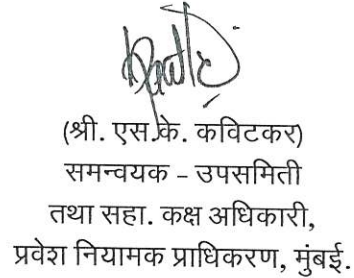 (श्री. एस.के. कविटकर)
समन्वयक – उपसमिती
तथा सहा. कक्ष अधिकारी,
प्रवेश नियामक प्राधिकरण, मुंबई.